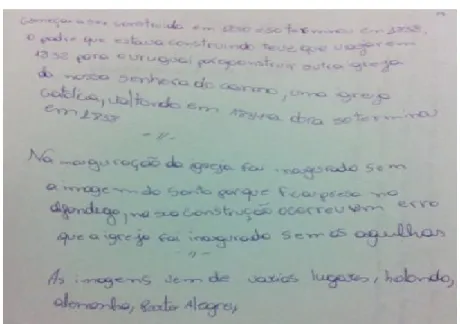 começar a ser construida em 1890 e so terminou em 1938,
o padre que estava construindo teve que viajar em
1932 para o uruguai para construir outra igreja
da nossa senhora do carmo, uma igreja
Católica, voltando em 1934 a obra so terminou
em 1938
-//-
Na inauguração da igreja foi inagurado sem
a imagem do Santo porque ficar presa na
alfandega, na sua construção ocorreu um erro
que a igreja foi inagurado sem os agulhas
-//-
As imagens vem de varios lugares, holanda,
alemanha, Porto Alegre,